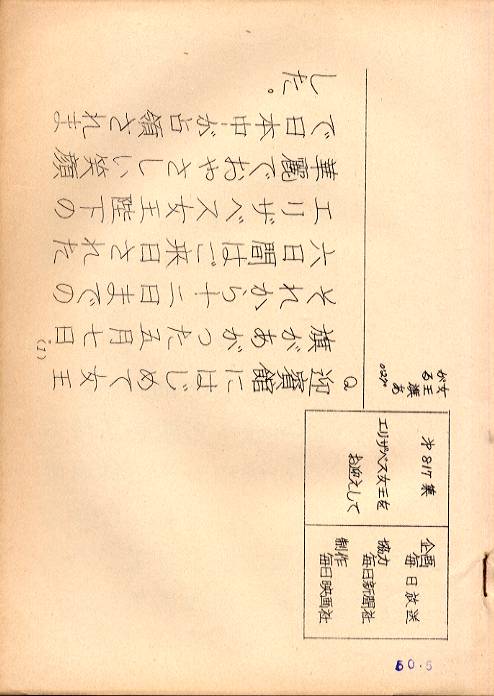 企画
毎日放送
協力
毎日新聞社
制作
毎日映画社
才817集
エリザベス女王を
お迎えして
女王旗あ
がる
Q
迎賓館にはじめて女王
旗があがった五月七日
それから十二日までの
六日間はご来日された
エリザベス女王陛下の
華麗でおやさしい笑顔
で日本中が占領されま
した。
(1)
50.5